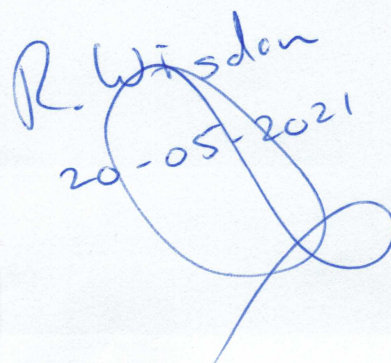 R. Wisdom
20-05-2021